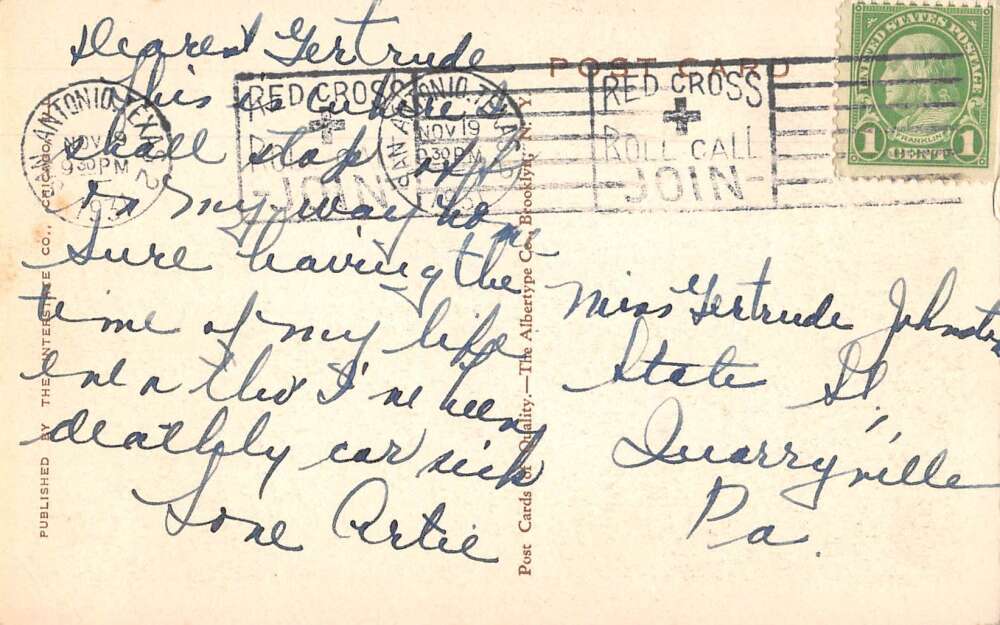 Dearest Gertrude
This is where I
shall stop off
on my way home
Sure having the
time of my life
even tho I've been
deathly car sick
Love Artie
POST CARD
SAN ANTONIO, TEXAS
NOV 19
9 30 PM
2
RED CROSS
ROLL CALL
JOIN
SAN ANTONIO, TEXAS
NOV 19
9 30 PM
RED CROSS
ROLL CALL
JOIN
UNITED STATES POSTAGE
FRANKLIN
1 CENT 1
Miss Gertrude Johnston
State St.
Quarryville
Pa.
PUBLISHED BY THE INTERSTATE CO., CHICAGO
Post Cards of Quality.—The Albertype Co., Brooklyn, N. Y.